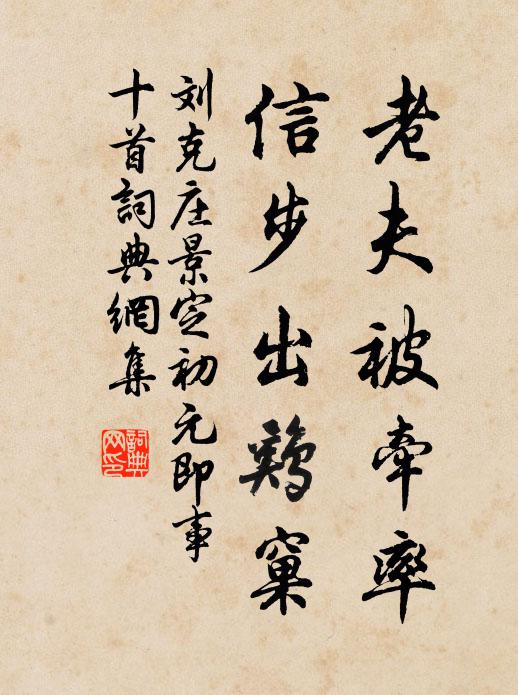 老夫被牽率
信步出鷄窠
刘克庄景定初元即事
十首詞典網集
詞典网印